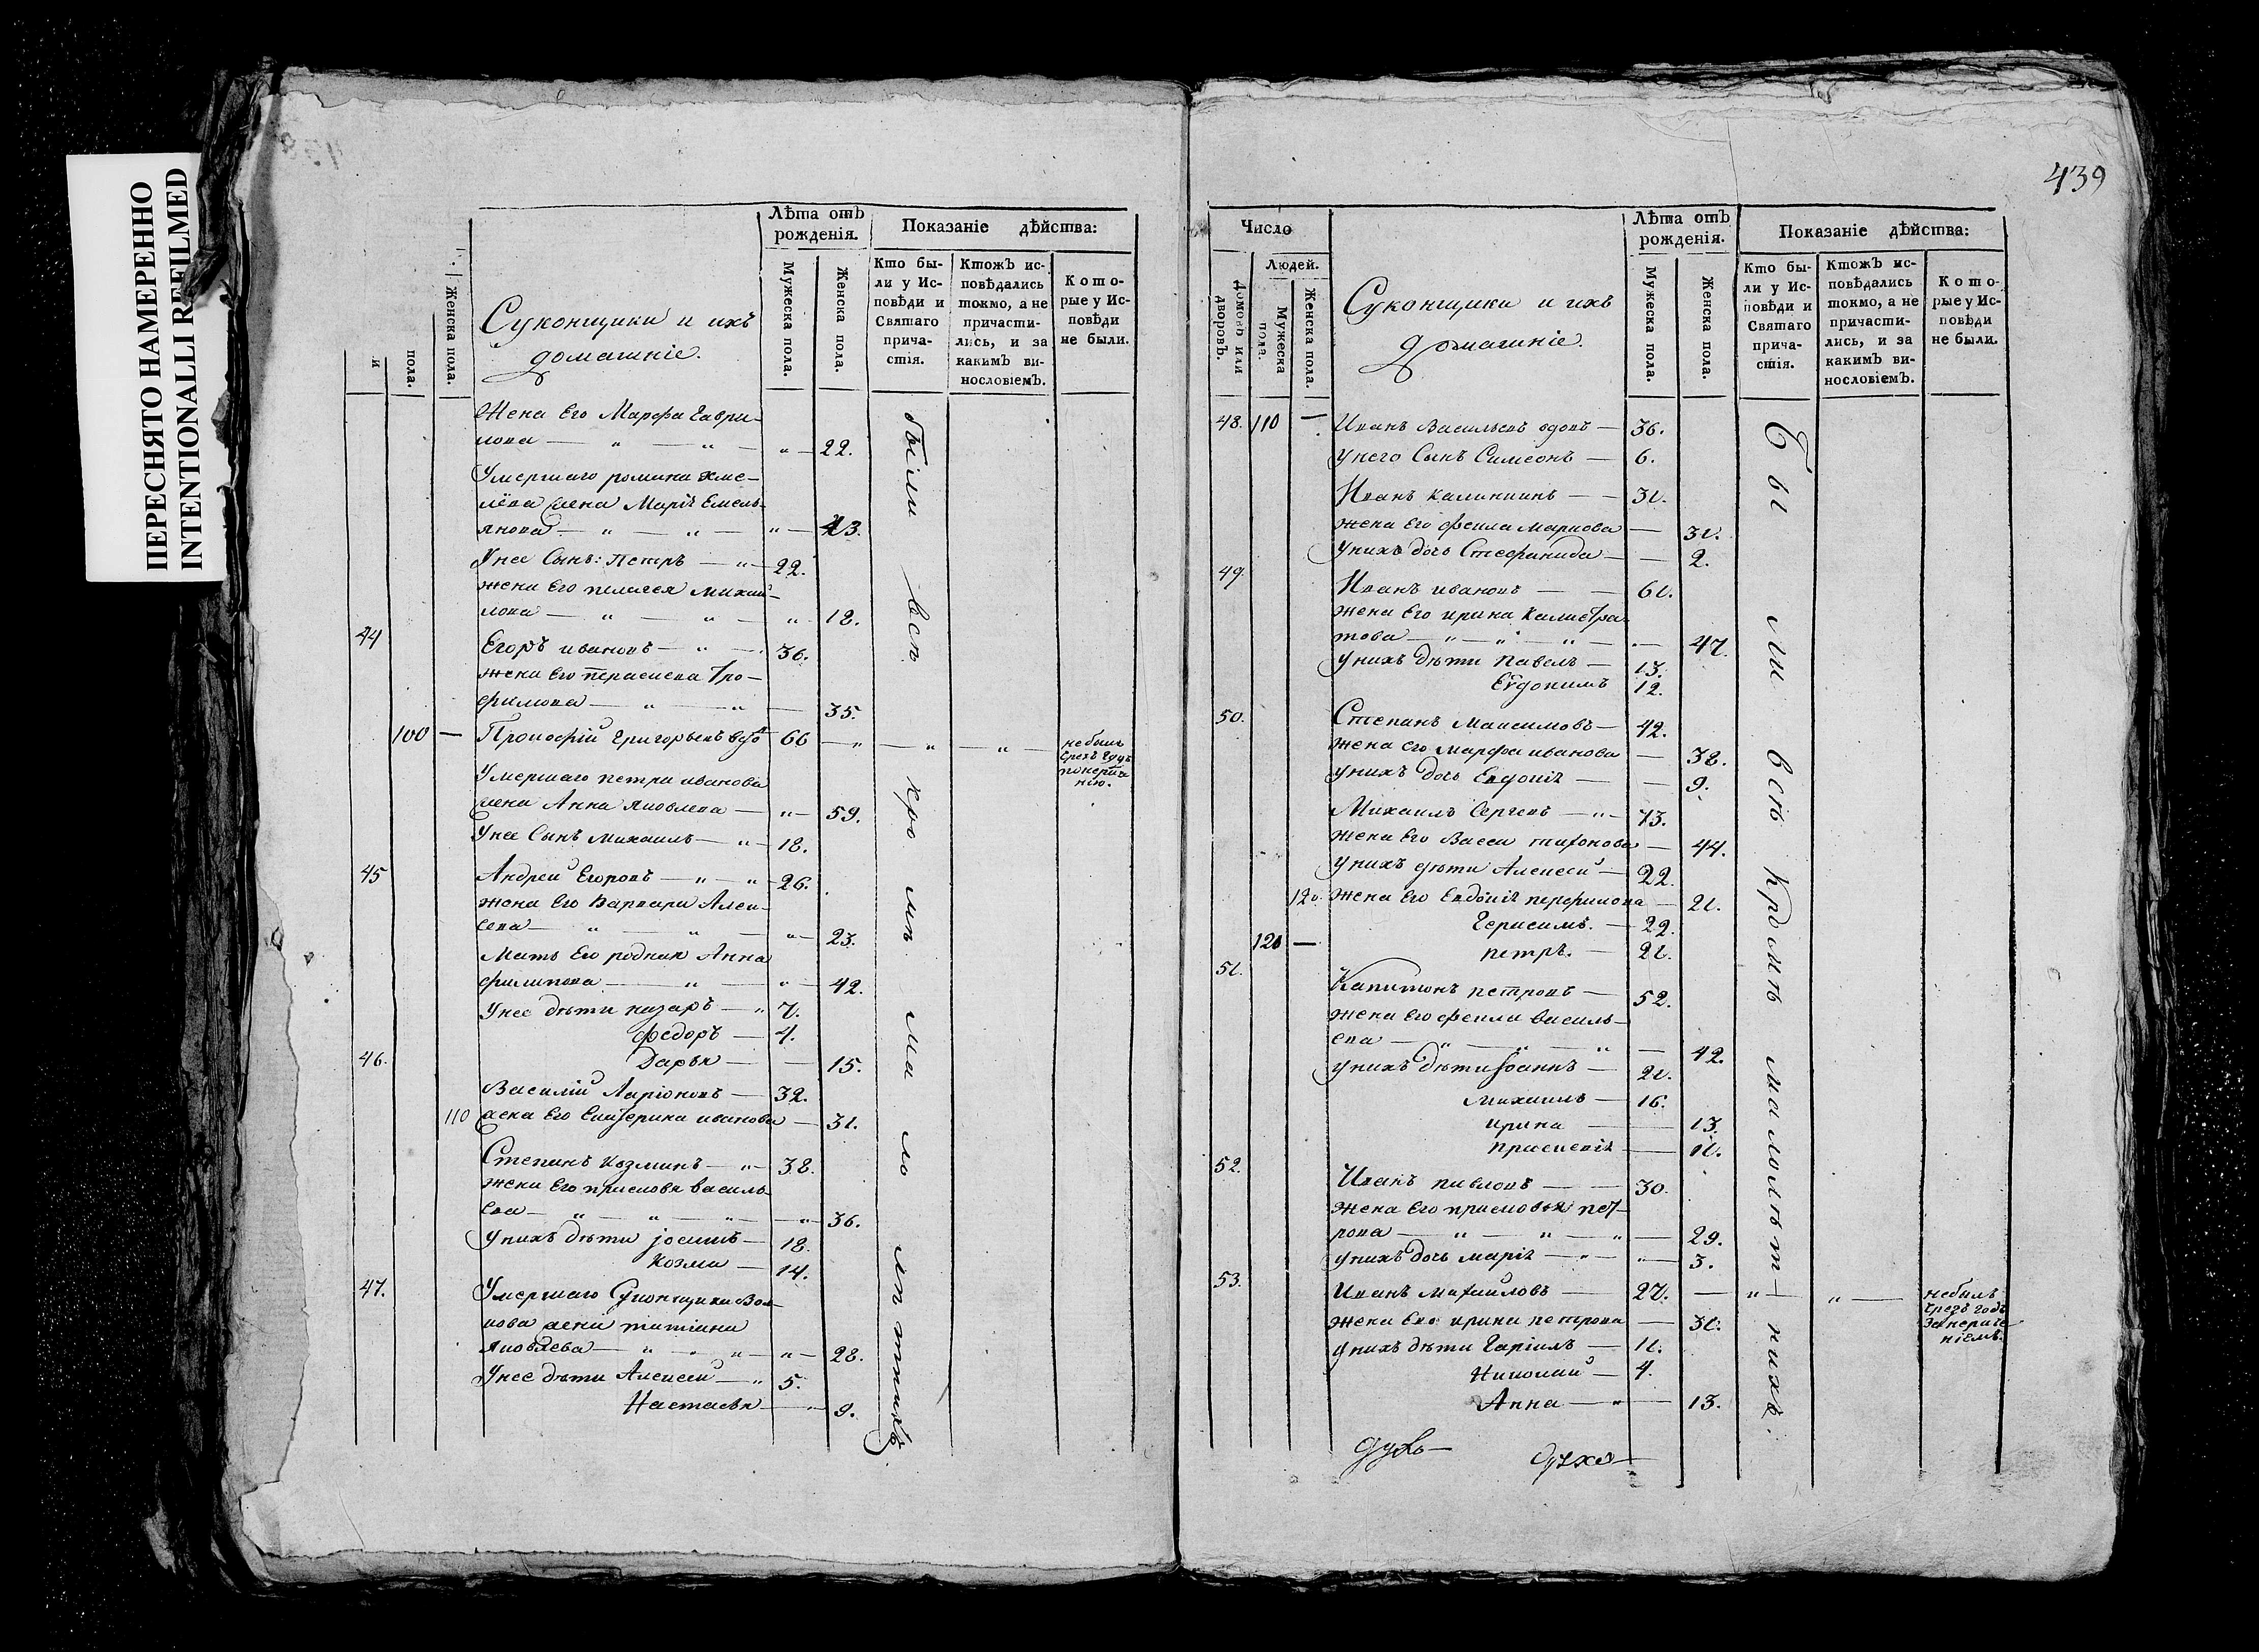 ПЕРЕСНЯТО НАМЕРЕННО
INTENTIONALLI REFILMED
439
Лѣта отъ рожденія.
Показаніе дѣйства:
Женска пола.
пола.
и
Суконщики и ихъ
домашніе.
Мужеска пола.
Женска пола.
Кто бы-
ли у Ис-
повѣди и
Святаго
прича-
стія.
Ктожъ ис-
повѣдались
токмо, а не
причасти-
лись, и за
какимъ ви-
нословіемъ.
Кото-
рые у Ис-
повѣди
не были.
Жена Его Марфа Гаври-
лова — " — " — " — 22.
Умершаго романа хме-
лёва жена Маріѣ Емель-
янова — " — " — " — 43.
Унее Сынъ: Петръ — " — 22.
жена Его пелагея михай-
лова — " — " — " 18.
44 Егоръ ивановъ — " — 36.
жена Его параскева тро-
фимова — " — " — 35.
100 — Прокофій Григорьевъ вдо — 66 — " — " — " —
небылъ
Умершаго петра иванова
жена Анна яковлева — " — 59.
Унее Сынъ михаилъ — " — 18.
45 Андрей Егоровъ — " — " — 26.
жена Его варвара Алек-
сева — " — " — " — 23.
Мать Его родная Анна
филипова — " — " — 42.
Унее дѣти назаръ — " 7.
федоръ — 4.
46. Дарья — — 15.
Василій Ларіоновъ — 32.
110 жена Его Екатерина иванова — 31.
Степанъ козминъ — " — 38.
жена Его прасковя василь-
ева — " — " — " — " — 36.
унихъ дѣти іосифъ — 18.
козма — 14.
47. Умершаго Суконщика Вол-
кова жена татіана
яковлева — " — " — " — 28.
Унее дѣти Алексей — " 5.
Настасья — " — 9.
были всѣ кромѣ малолѣтнихъ
Число
Людей.
Домовъ или
дворовъ.
Мужеска
пола.
Женска пола.
Суконщики и ихъ
домашніе.
Лѣта отъ
рожденія.
Мужеска пола.
Женска пола.
Показаніе дѣйства:
Кто бы-
ли у Ис-
повѣди и
Святаго
прича-
стія.
Ктожъ ис-
повѣдались
токмо, а не
причасти-
лись, и за
какимъ ви-
нословіемъ.
Кото-
рые у Ис-
повѣди
не были.
48. 110 — Иванъ Васильевъ вдовъ — 36.
унего Сынъ Симеонъ — 6.
Иванъ калининъ — — 31.
жена Его фекла маркова — 31.
унихъ дочь Стефанида — — 2.
49. Иванъ ивановъ — — 61.
жена Его ирина Калистра
това — " — " — " — — 47.
унихъ дѣти павелъ — 13.
Евдокимъ 12.
50. Степанъ Максимовъ — 42.
жена его марфа иванова — 38.
унихъ дочь Евдокіѣ — — 9.
Михаилъ Сергевъ — " — 73.
жена Его Васса тихонова — 44.
унихъ дѣти Алексей — 22.
120. жена Его Евдокіѣ перфилова — 21.
Герасимъ. — 22.
120 — петръ. — 21.
51. Капитонъ петровъ — 52.
жена Его фекла василь-
ева — " — " — " — 42.
унихъ дѣти Іоаннъ — 21.
михаилъ — 16.
ирина — — 13.
прасковіѣ — — 11.
52. Иванъ павловъ — — 30.
жена Его прасковья пет-
рова — " — " — " — 29.
унихъ дочь маріѣ — " — " — 3.
53. Иванъ михаиловъ — 27. — " — " —
небылъ
чрезъ годъ
жена Его ирина петрова — 31.
унихъ дѣти Гаріилъ — 11.
Николай — 4.
Анна — " — 13.
Бы ли всѣ кромѣ малолѣт — нихъ.